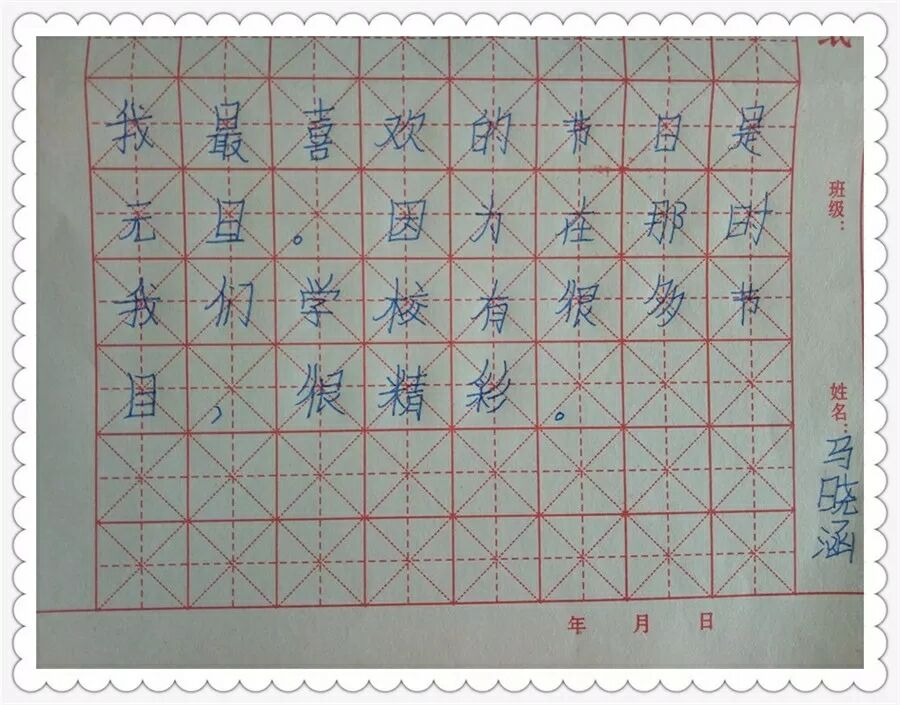 我最喜欢的节日是
元旦。因为在那时
我们学校有很多节
目，很精彩。
班级：
姓名：马晓涵
年 月 日